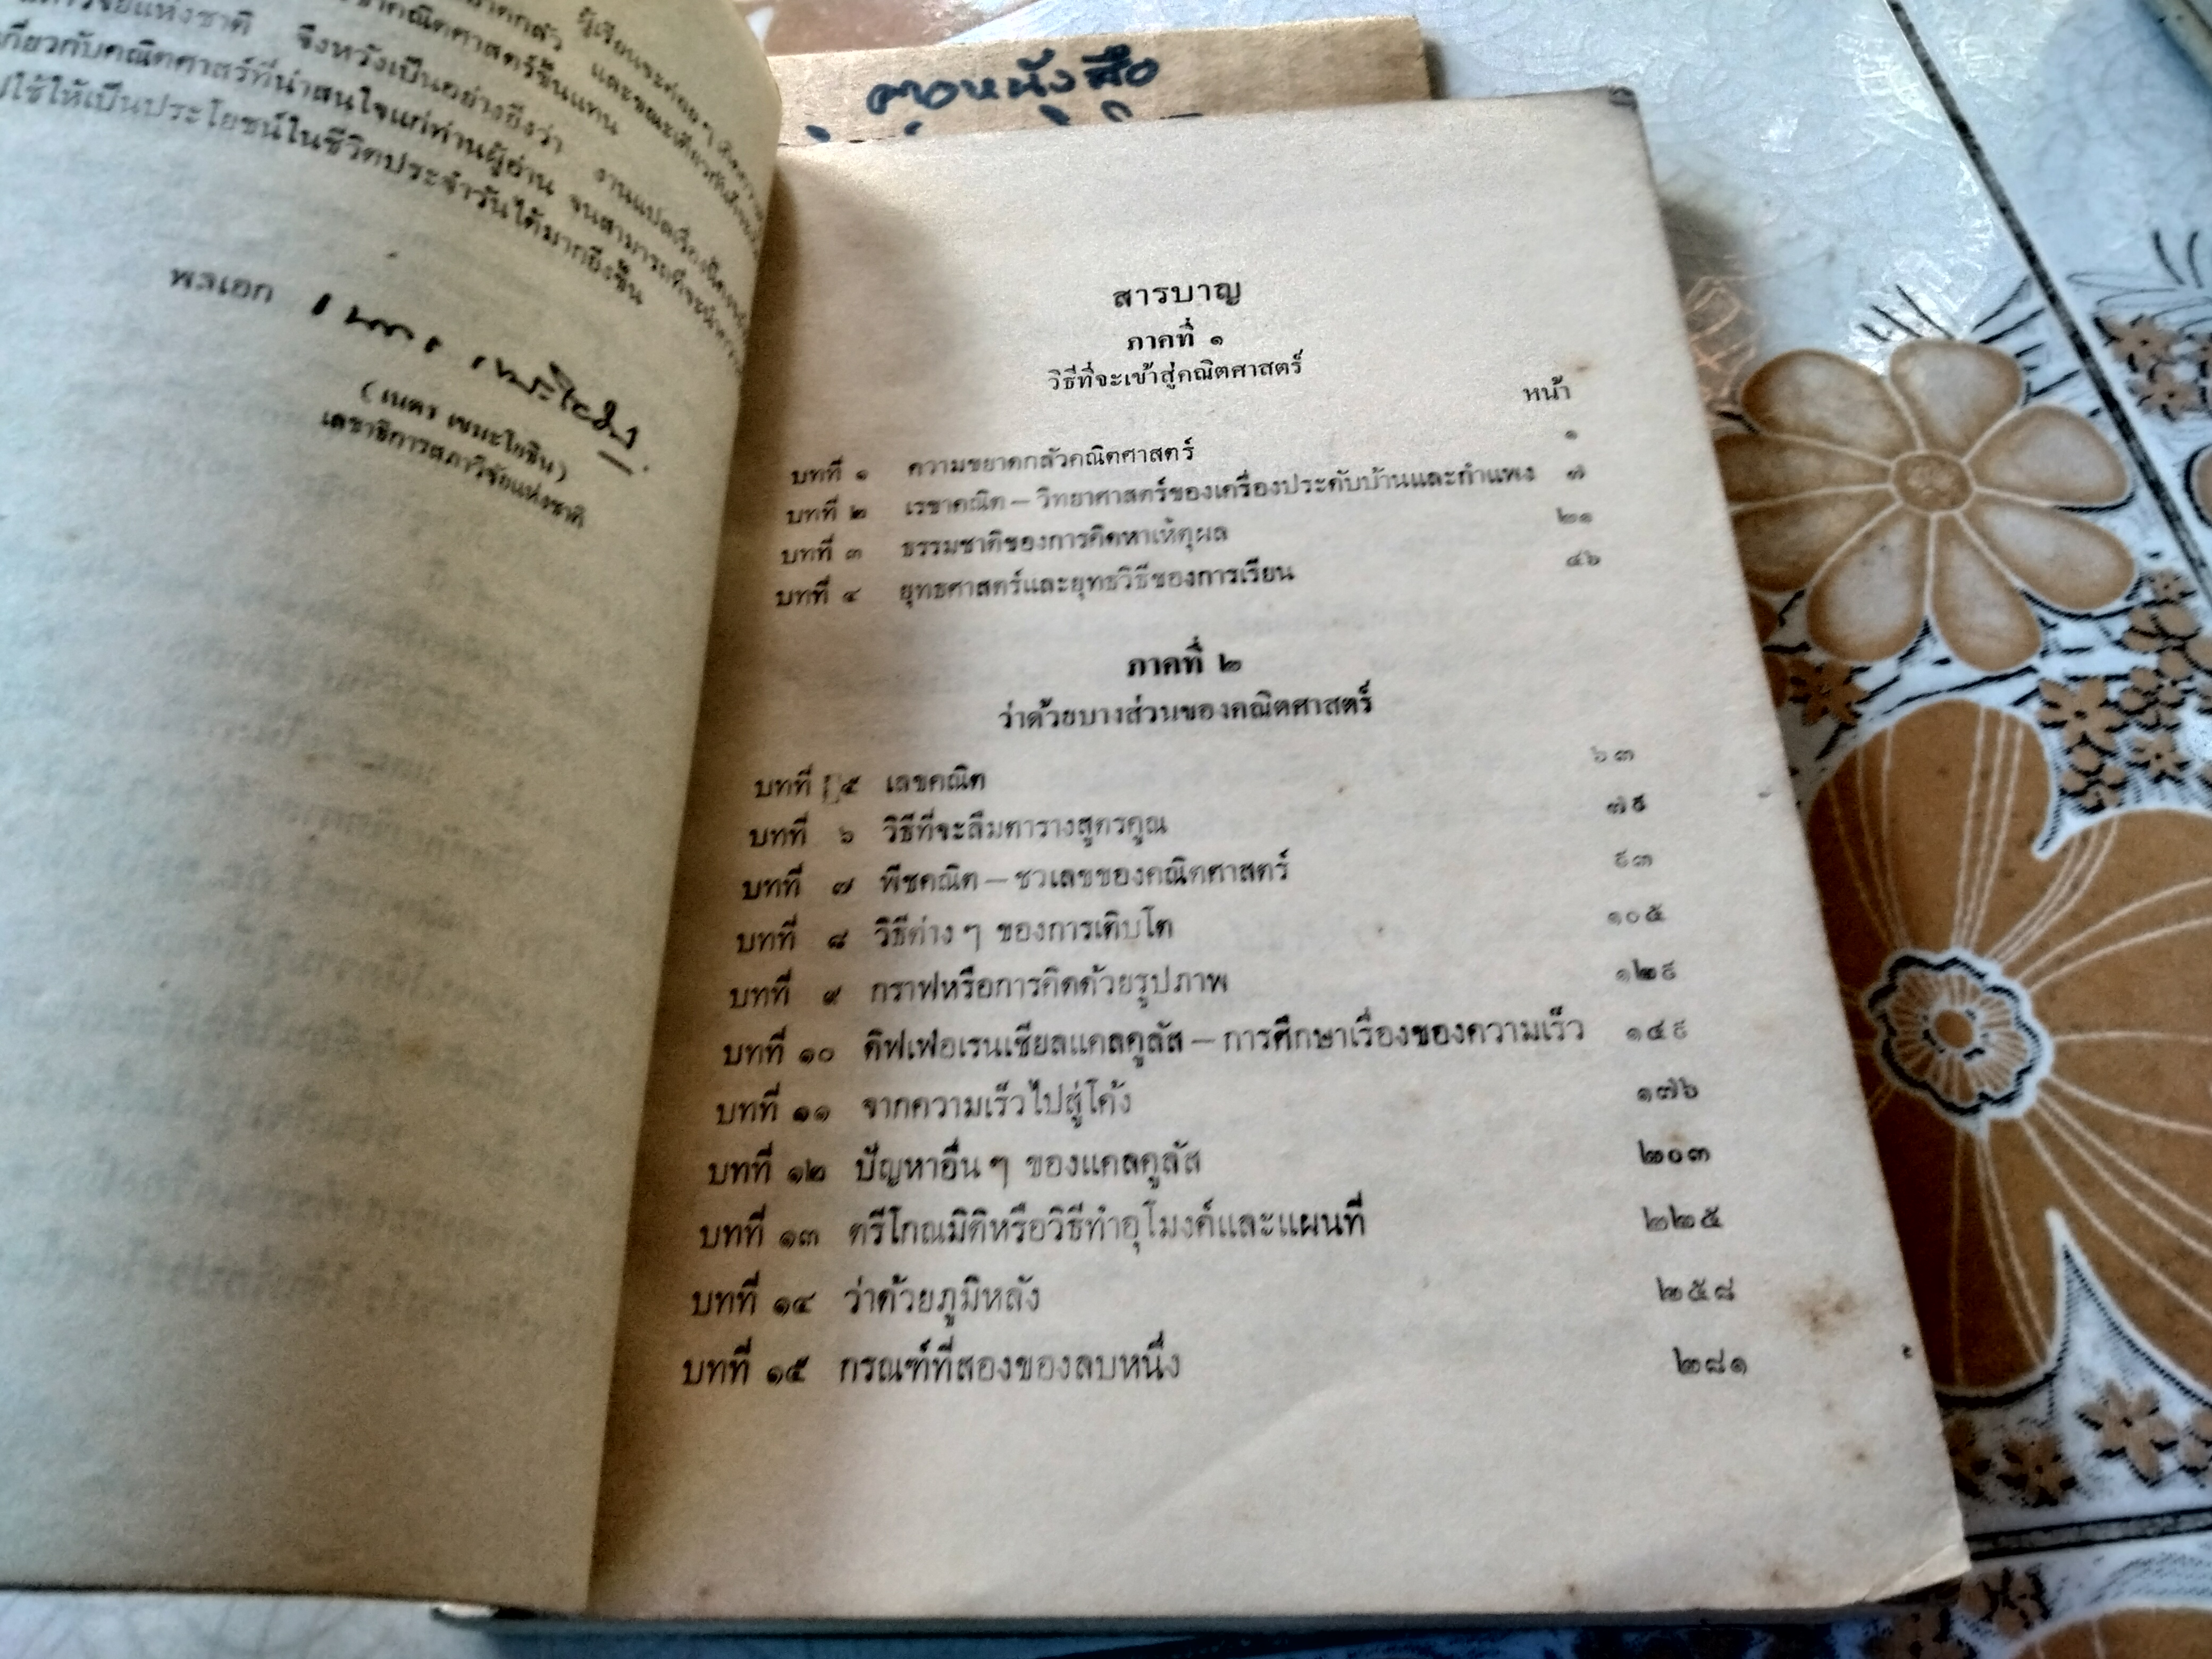 จึงหวังเป็นอย่างยิ่งว่า
เกี่ยวกับคณิตศาสตร์ที่น่าสนใจแก่ท่านผู้อ่าน จนสามารถที่จะนำ
ใช้ให้เป็นประโยชน์ในชีวิตประจำวันได้มากยิ่งขึ้น
พลเอก
(เนตร เขมะโยธิน)
เลขาธิการสภาวิจัยแห่งชาติ
สารบาญ
ภาคที่ ๑
วิธีที่จะเข้าสู่คณิตศาสตร์
หน้า
บทที่ ๑ ความขยาดกลัวคณิตศาสตร์ ๑
บทที่ ๒ เรขาคณิต – วิทยาศาสตร์ของเครื่องประดับบ้านและกำแพง ๗
บทที่ ๓ ธรรมชาติของการคิดหาเหตุผล ๒๑
บทที่ ๔ ยุทธศาสตร์และยุทธวิธีของการเรียน ๔๖
ภาคที่ ๒
ว่าด้วยบางส่วนของคณิตศาสตร์
บทที่ ๕ เลขคณิต ๖๓
บทที่ ๖ วิธีที่จะลืมตารางสูตรคูณ ๗๕
บทที่ ๗ พีชคณิต – ชวเลขของคณิตศาสตร์ ๙๓
บทที่ ๘ วิธีต่าง ๆ ของการเติบโต ๑๐๕
บทที่ ๙ กราฟหรือการคิดด้วยรูปภาพ ๑๒๙
บทที่ ๑๐ ดิฟเฟอเรนเชียลแคลคูลัส – การศึกษาเรื่องของความเร็ว ๑๔๙
บทที่ ๑๑ จากความเร็วไปสู่โค้ง ๑๗๖
บทที่ ๑๒ ปัญหาอื่น ๆ ของแคลคูลัส ๒๐๓
บทที่ ๑๓ ตรีโกณมิติหรือวิธีทำอุโมงค์และแผนที่ ๒๒๕
บทที่ ๑๔ ว่าด้วยภูมิหลัง ๒๕๘
บทที่ ๑๕ กรณฑ์ที่สองของลบหนึ่ง ๒๘๑